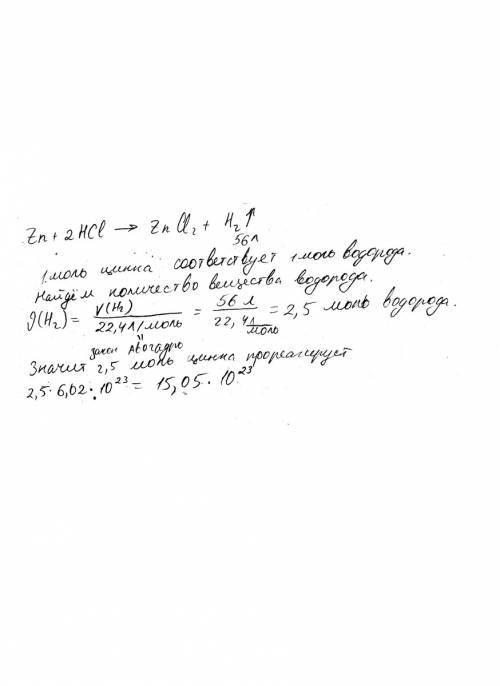 Zn + 2HCl → ZnCl₂ + H₂↑
56л
1 моль цинка соответствует 1 моль водорода.
Найдём количество вещества водорода.
ν(H₂) = V(H₂) / 22,4 л/моль = 56 л / 22,4 л/моль = 2,5 моль водорода.
закон Авогадро
Значит 2,5 моль цинка прореагирует
2,5 · 6,02 · 10²³ = 15,05 · 10²³